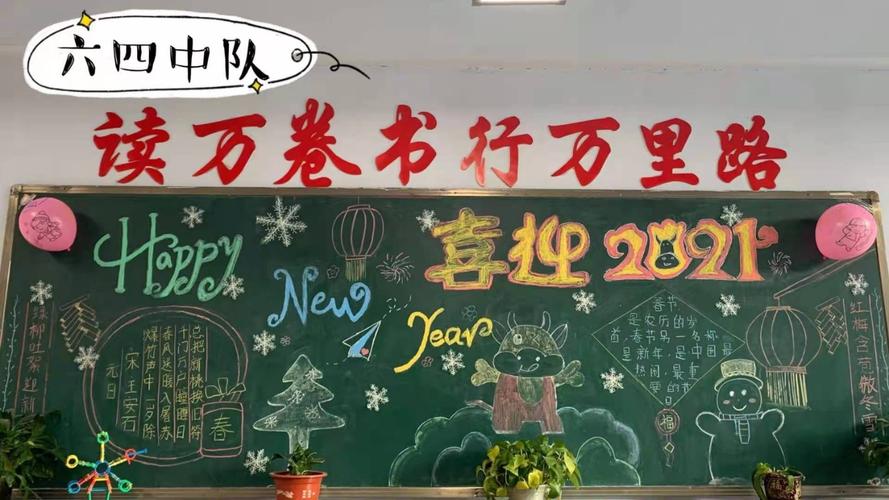 六四中队
读万卷书行万里路
Happy
New
Year
喜迎2021
绿柳吐絮迎新
元日
宋 王安石
爆竹声中一岁除
春风送暖入屠苏
千门万户曈曈日
总把新桃换旧符
春
春节
是农历的岁
首,春节另一名称
是新年,是中国最
热闹,最重
要的节
福
红梅含苞傲冬雪